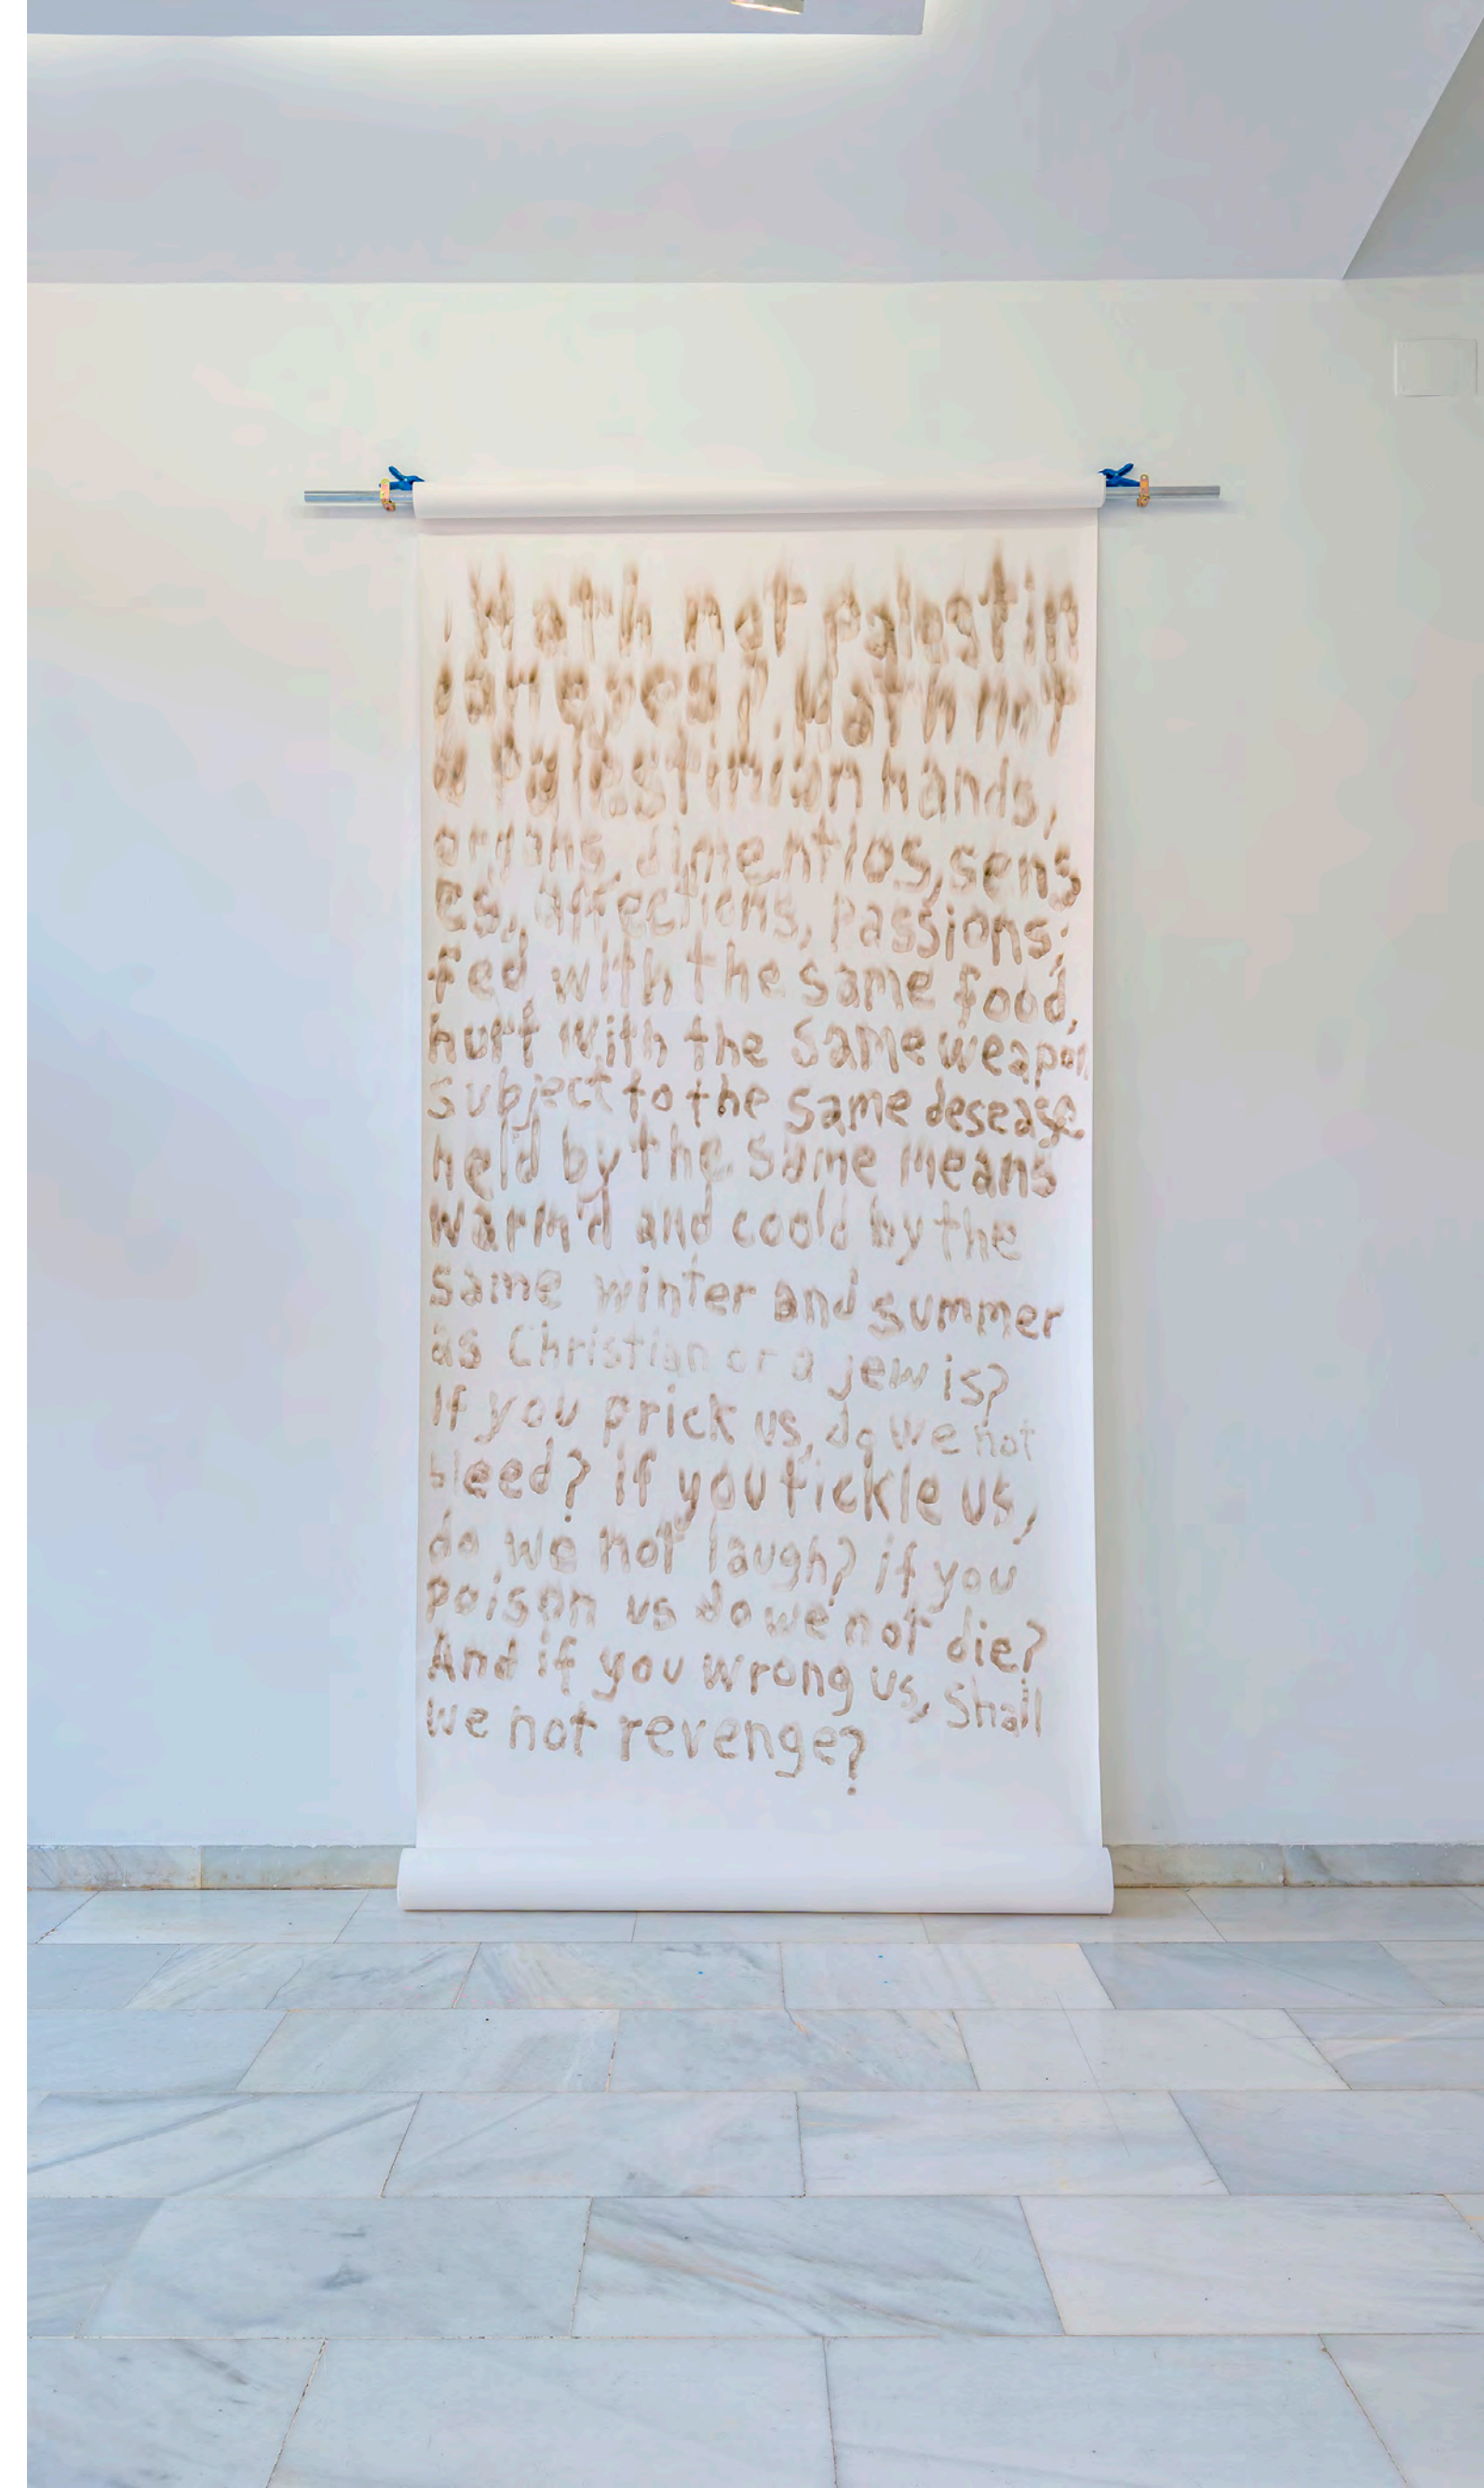 Hath not palestin
ian eyes? Hath not
a Palestinian hands,
organs, dimentios, sens
es, affections, passions;
fed with the same food,
hurt with the same weapon
subject to the same desease
held by the same means
warm'd and coold by the
same winter and summer
as Christian or a jew is?
If you prick us, do we not
bleed? if you tickle us,
do we not laugh? if you
poison us do we not die?
And if you wrong us, Shall
we not revenge?